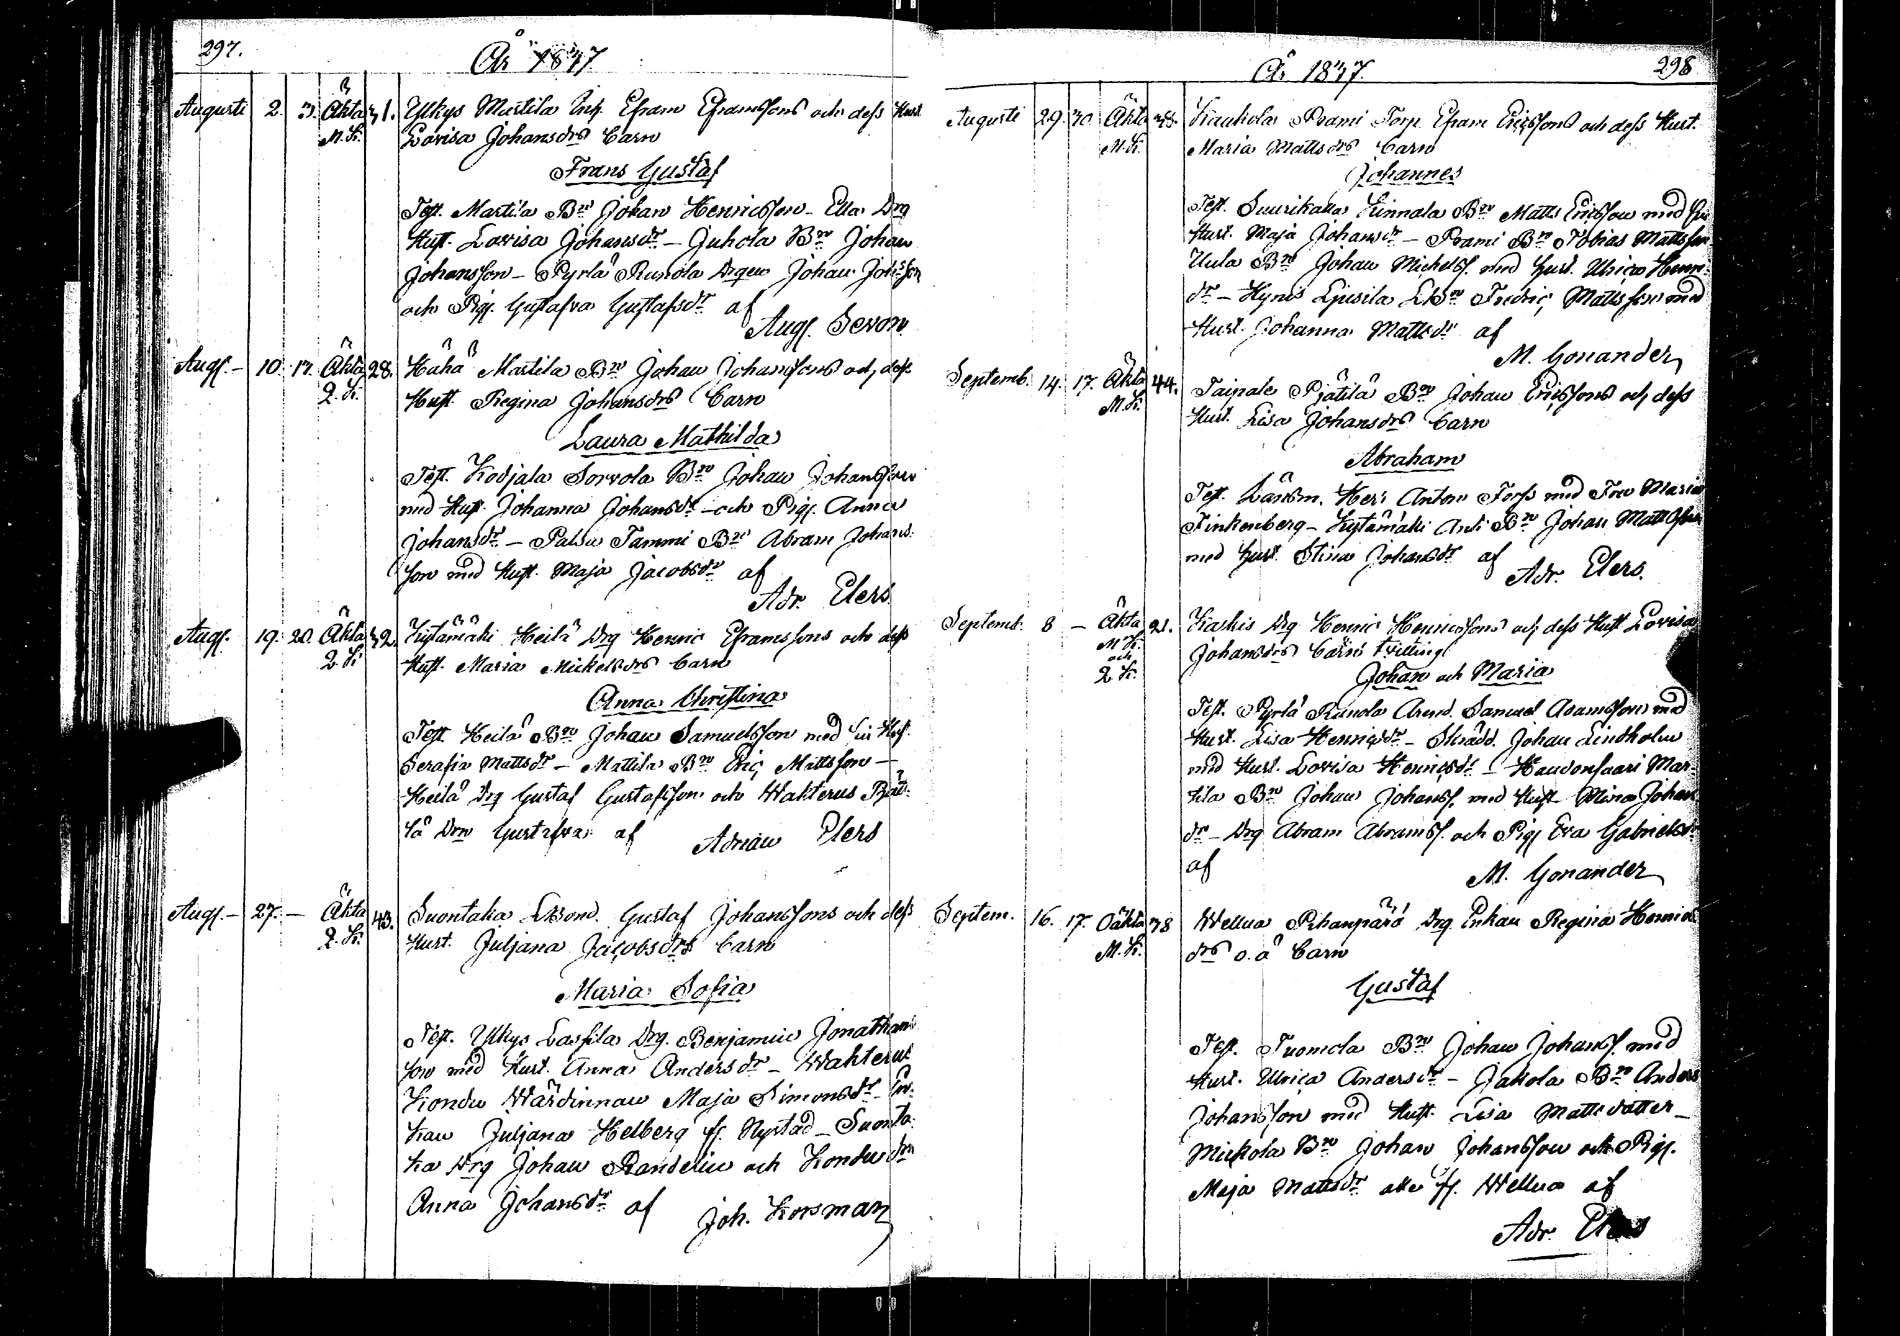 297.
År 1847.
Augusti 2. 3. Äkta M.K. 31. Ylkys Martila Inh. Efram Eframssons och dess Hust.
Lovisa Johansdrs barn
Frans Gustaf
Test. Martila Bn Johan Henricsson - Ella Drg
Hust. Lovisa Johansdr - Juhola Bn Johan
Johansson - Pyrlä Runola Drgen Johan Johsson
och Pig. Gustafva Gustafsdr af
Aug. Sevon
Aug. - 10. 17. Äkta Q.K. 28. Hähä Martila Bn Johan Johanssons och dess
Hust. Regina Johansdrs barn
Laura Mathilda
Test. Kodjala Sorvola Bn Johan Johansson
med Hust. Johanna Johansdr - och Pig. Anna
Johansdr - Palsa Tammi Bn Abram Johans-
son med Hust. Maja Jacobsdr af
Adr. Elers
Aug. 19. 20. Äkta Q.K. 32. Kystämäki Heilä Drg Henric Eframssons och dess
Hust. Maria Mickelsdrs barn
Anna Christina
Test. Heilä Bn Johan Samuelsson med sin Hust.
Serafia Mattsdr - Mattila Bn Eric Mattsson -
Heilä Drg Gustaf Gustafsson och Wakterus
Drn Gustafva af Adrian Elers
Aug. - 27. - Äkta Q.K. 43. Suontaka Gustaf Johanssons och dess
Hust. Juljana Jacobsdrs barn
Maria Sofia
Test. Ylkys Lassila Drg. Benjamin Jonathans-
son med Hust. Anna Andersdr - Wakterus
Kondu Wärdinnan Maja Simonsdr
Juljana Helberg fr. Nystad - Suonta-
ka Drg Johan Randelin och Kondu
Anna Johansdr af Joh. Korsman
År 1847. 298
Augusti 29. 30. Äkta M.K. Kaukola Prami Torp. Efram Ericssons och dess Hust.
Maria Mattsdrs barn
Johannes
Test. Suurikkala Kinnala Bn Matts Ericsson med
Hust. Maja Johansdr - Prami Bn Tobias Mattsson
Uula Bn Johan Michelss. med Hust. Ulrica Henr.
dr - Hynis Fredric Mattsson med
Hust. Johanna Mattsdr af
M. Gonander
Septemb. 14. 17. Äkta M.K. 44. Taipale Pjätilä Bn Johan Ericssons och dess
Hust. Lisa Johansdrs barn
Abraham
Test. Länsm. Herr Anton Forss med Fru Maria
Finkenberg - Kystämäki Anti Bn Johan Mattsson
med Hust. Stina Johansdr af
Adr. Elers.
Septemb. 8 - Äkta M.K. och Q.K. 21. Kaskis Drg Henric Henricssons och dess Hust. Lovisa
Johansdrs barn twilling
Johan och Maria
Test. Pyrlä Runola Arend. Samuel Adamsson med
Hust. Lisa Henricsdr - Skrädd. Johan Lindholm
med Hust. Lovisa Henricsdr - Haudonsaari Mar-
tila Bn Johan Johanss. med Hust. Mina Johans
dr - Drg Abram Abramss. och Pig. Eva Gabrielsdr
af
M. Gonander
Septem. 16. 17. Oäkta M.K. 38 Wellua Pihanpärä Drg. Enkan Regina Henrics
drs o.ä barn
Gustaf
Test. Tuomola Bn Johan Johanss. med
Hust. Ulrica Andersdr - Jakola Bn Anders
Johansson med Hust. Lisa Mattsdotter -
Mickola Bn Johan Johansson och Pig.
Maja Mattsdr alla fr. Wellua af
Adr. Elers